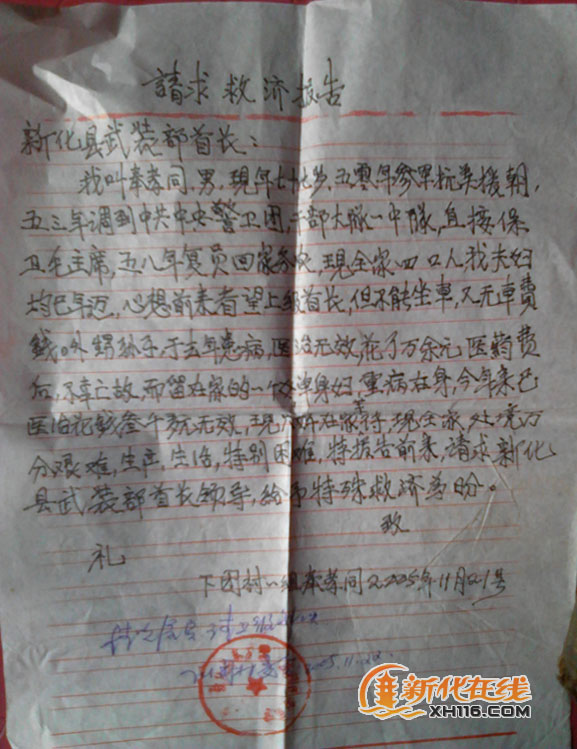 請求救济报告
新化县武装部首长：
我叫奉孝同，男，现年七十七岁，五零年参军抗美援朝，
五三年调到中共中央警卫团，干部大队一中队，直接保
卫毛主席，五八年复员回家务农，现全家四口人，我夫妇
均已年迈，心想前来看望上级首长，但不能坐車，又无車费
钱。外甥孙子，于去年患病，医治无效，花了万余元医药费
后，不幸亡故，而留在家的一个单身妇重病在身，今年来已
医治花钱叁千多元无效，现在家待，现全家处境万
分艰难，生产，生活，特别困难，特报告前来，請求新化
县武装部首长领导，给予特殊救济为盼。
致
礼
下团村一组奉孝同 2005年11月21号
2005.11.22.
新化在线
XH116.COM